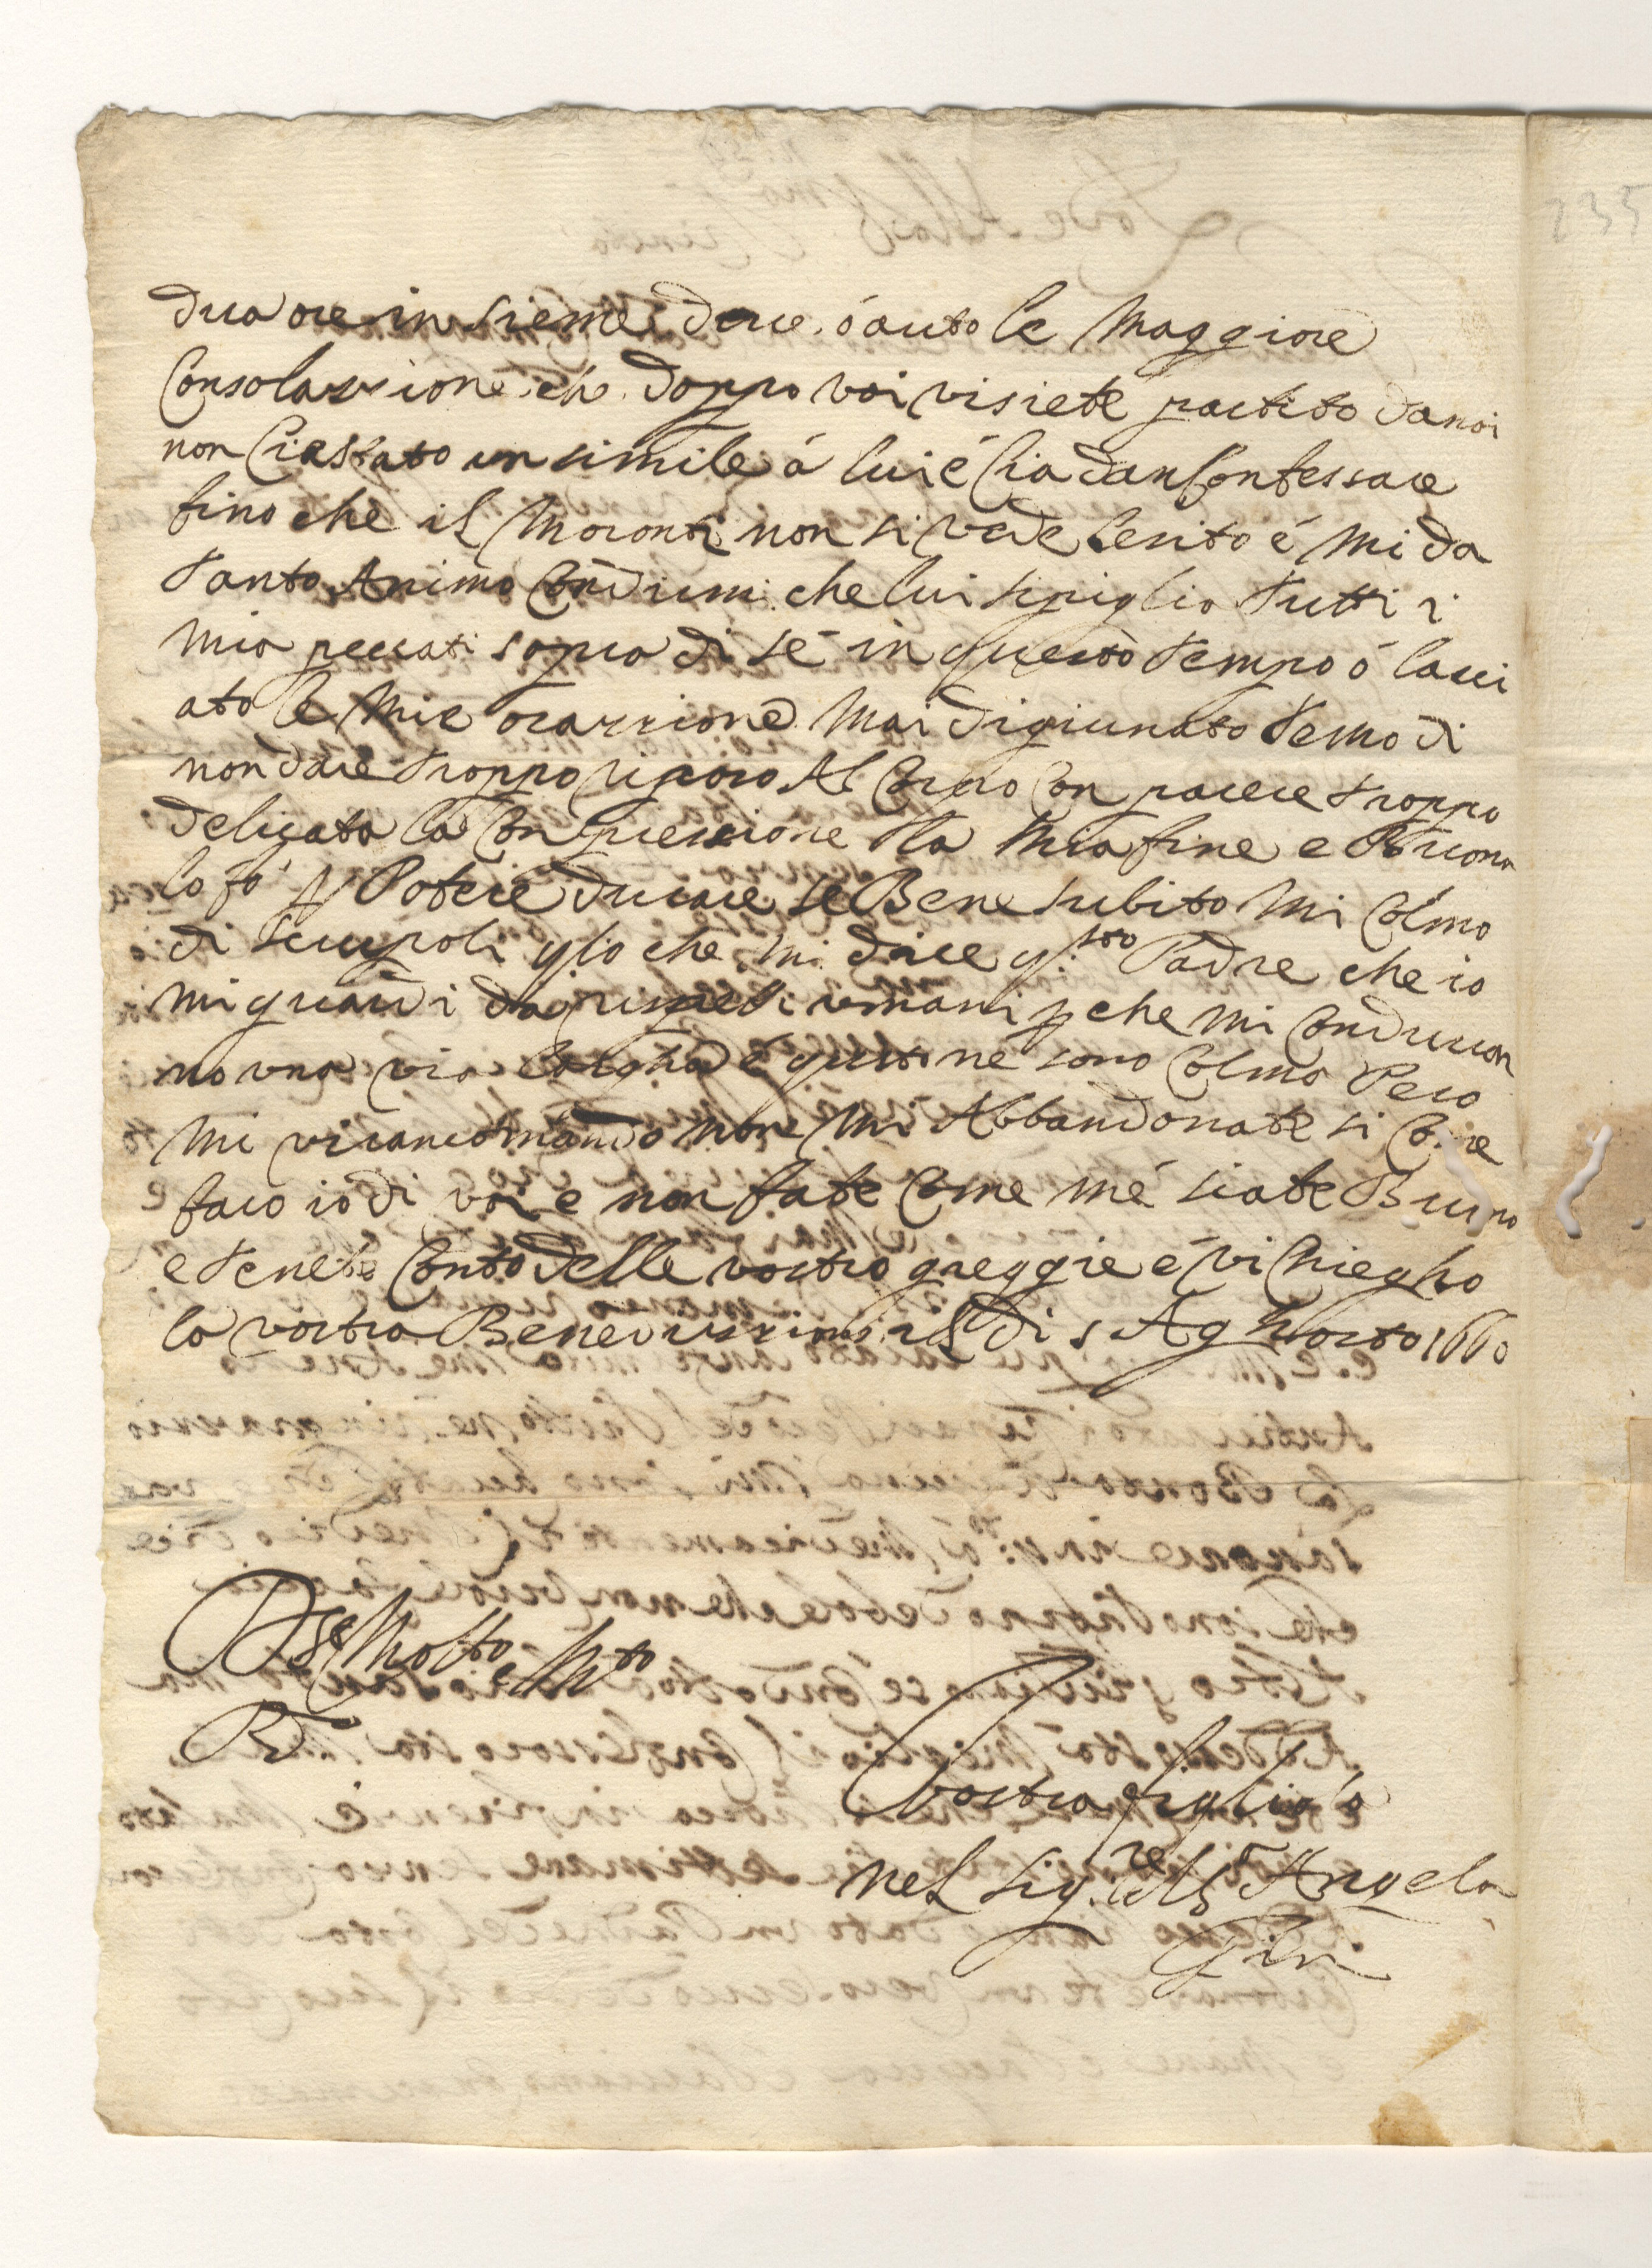 dua ore in sieme dove ó auto le Maggiore
Consolazzione che doppo voi visiete partito danoi
non Ciestato un simile á lui é Cia dan Confessare
fino che il Moronti non si vede lesito é Mi da
tanto Animo Condirmi che lui sipiglia tutti i
Mia peccati sopra di sé in questo tempo ó lasci
ato le Mie orazzione Mai digiunato temo di
non dare troppo rigoro Al Corpo Con parere troppo
delicata la Conpressione Ma Mia fine e Buona
lo fó p Potere durare se Bene subito Mi Colmo
di scrupoli q.lo che Mi dice q.sto Padre che io
Mi guardi da rispetti umani p che Mi Conducon
no una via largha é questo ne sono Colma Pero
Mi viracomando none Mi Abbandonate si Come
faco io di voi e non fate Come mé siate Buono
e tenete Conto delle vostro greggie é vi Chiegho
la vostra Benedizzione il di 5 Aghosto 1660
Molto Mto
Rdo
vostra figliola
nel sig.re Ma Angela
Gini
235